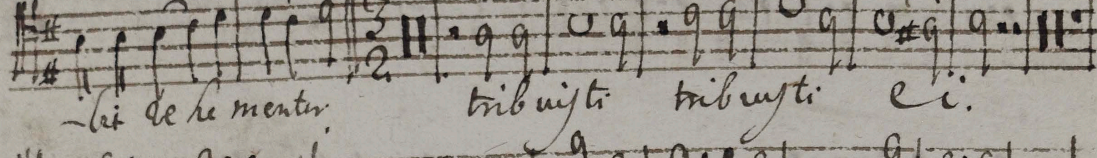 3
2
-bit vehementer tribuisti tribuisti ei.